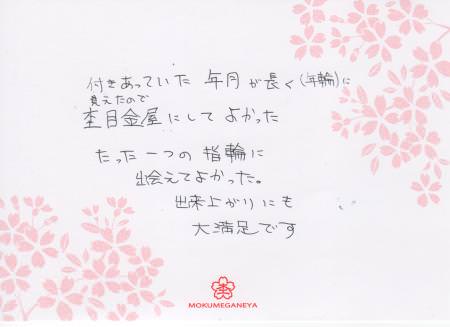 付きあっていた 年月が長く(年輪)に
見えたので
杢目金屋にして よかった
たった一つの 指輪に
出会えてよかった。
出来上がりにも
大満足です
MOKUMEGANEYA